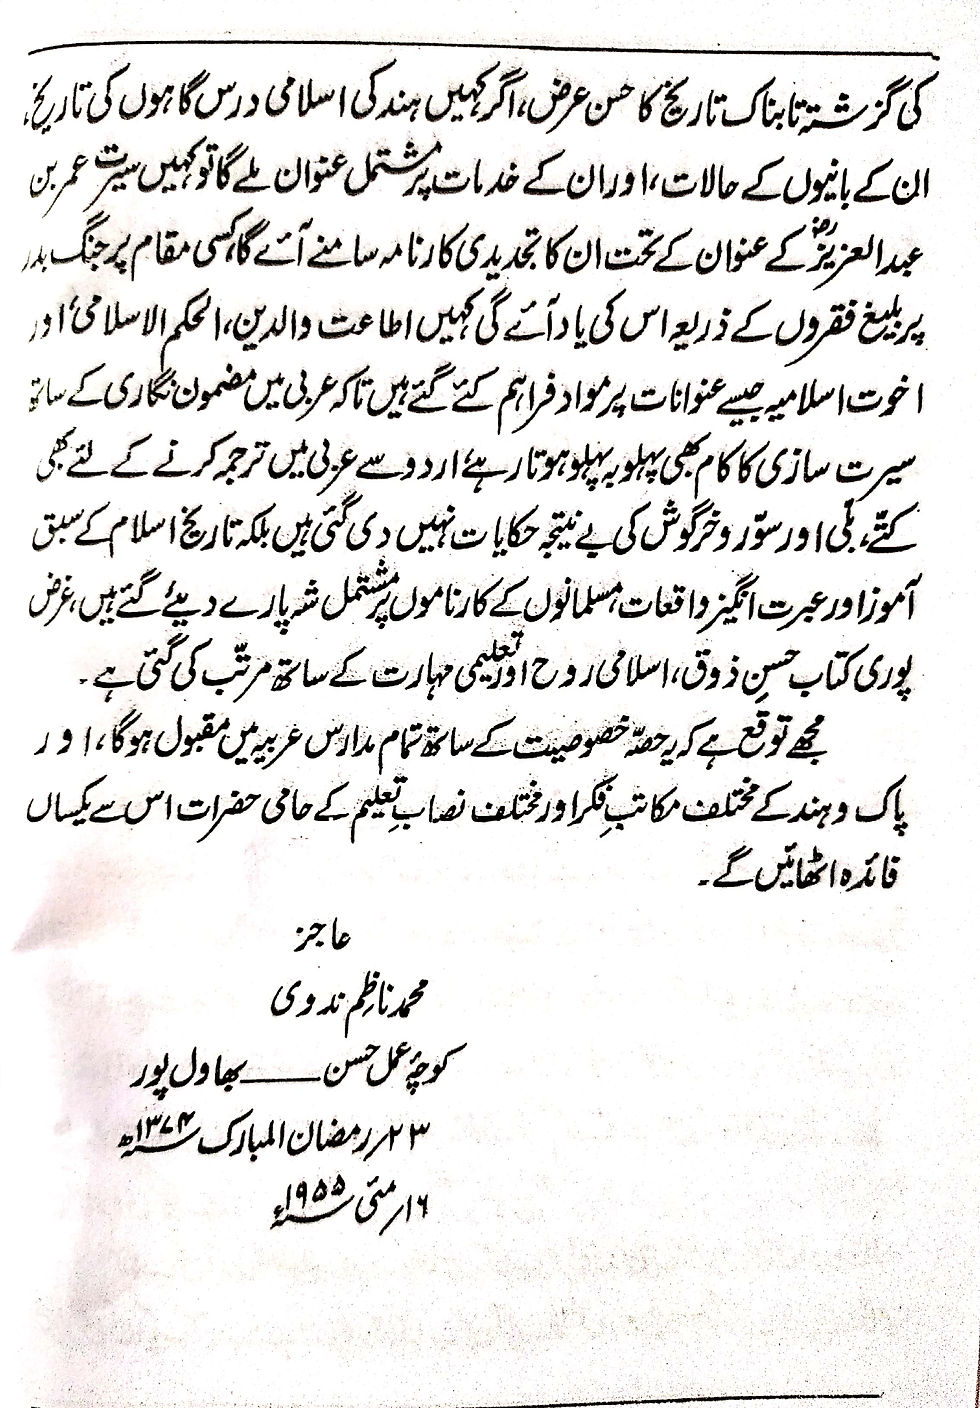 کی گزشتہ تابناک تاریخ کا حسن عرض، اگر کہیں ہند کی اسلامی درس گاہوں کی تاریخ،
ان کے بانیوں کے حالات، اور ان کے خدمات پر مشتمل عنوان ملے گا تو کہیں سیرت عمر بن
عبدالعزیزؓ کے عنوان کے تحت ان کا تجدیدی کارنامہ سامنے آئے گا، کسی مقام پر جنگ بدر
پر بلیغ فقروں کے ذریعہ اس کی یاد آئے گی کہیں اطاعت والدین، الحکم الاسلامی، اور
اخوت اسلامیہ جیسے عنوانات پر مواد فراہم کئے گئے ہیں تاکہ عربی میں مضمون نگاری کے ساتھ
سیرت سازی کا کام بھی پہلو بہ پہلو ہوتا رہے، اردو سے عربی میں ترجمہ کرنے کے لئے بھی
کتّے، بلّی اور سوّر و خرگوش کی بے نتیجہ حکایات نہیں دی گئی ہیں بلکہ تاریخ اسلام کے سبق
آموز اور عبرت انگیز واقعات، مسلمانوں کے کارناموں پر مشتمل شہ پارے دیئے گئے ہیں، غرض
پوری کتاب حسنِ ذوق، اسلامی روح اور تعلیمی مہارت کے ساتھ مرتّب کی گئی ہے۔
مجھے توقع ہے کہ یہ حصّہ خصوصیت کے ساتھ تمام مدارس عربیہ میں مقبول ہوگا، اور
پاک و ہند کے مختلف مکاتبِ فکر اور مختلف نصابِ تعلیم کے حامی حضرات اس سے یکساں
فائدہ اٹھائیں گے۔
عاجز
محمد ناظم ندوی
کوچۂ عمل حسن ــــــ بھاول پور
۲۳؍رمضان المبارک ۱۳۷۴ھ
۱۶؍مئی ۱۹۵۵ء